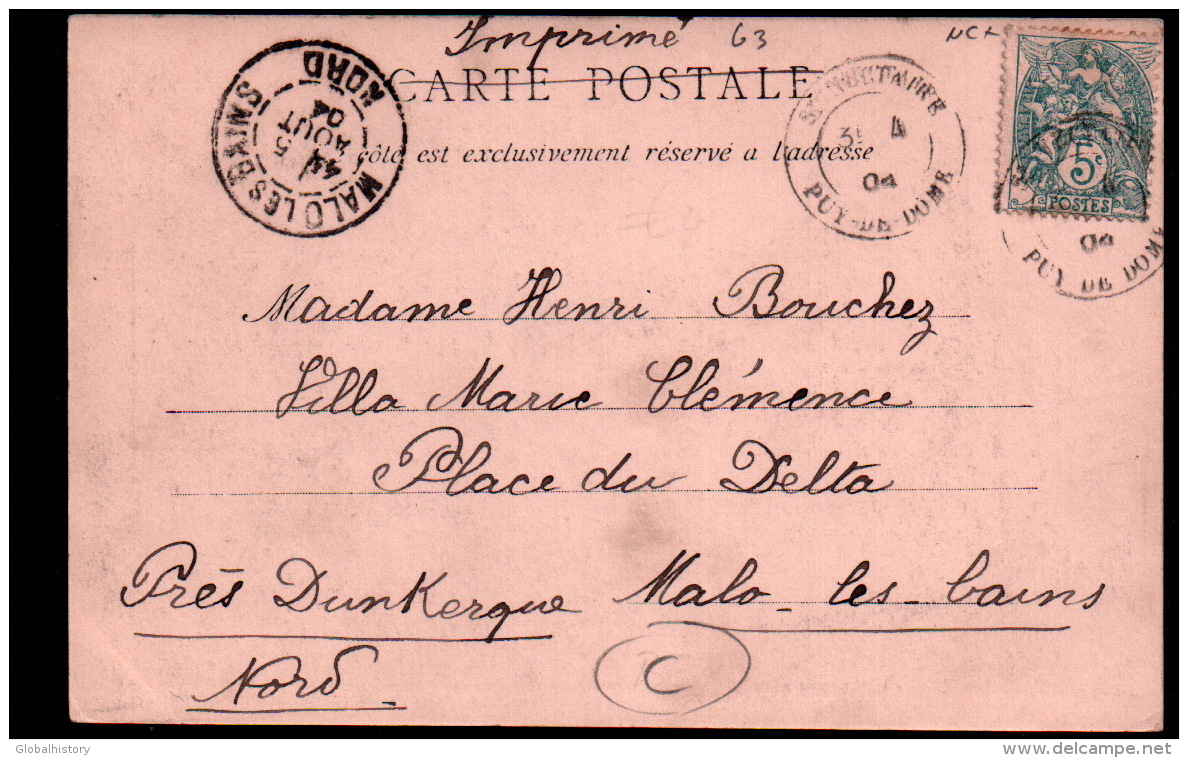 Imprimé 63
CARTE POSTALE
côté est exclusivement réservé a l'adresse
MALO LES BAINS
NORD
5
AOUT
04
PUY-DE-DÔME
04
5c
POSTES
04
PUY-DE-DOME
Madame Henri Bouchez
Villa Marie Clémence
Place du Delta
Près Dunkerque Malo-les-bains
Nord
C
Globalhistory
www.delcampe.net